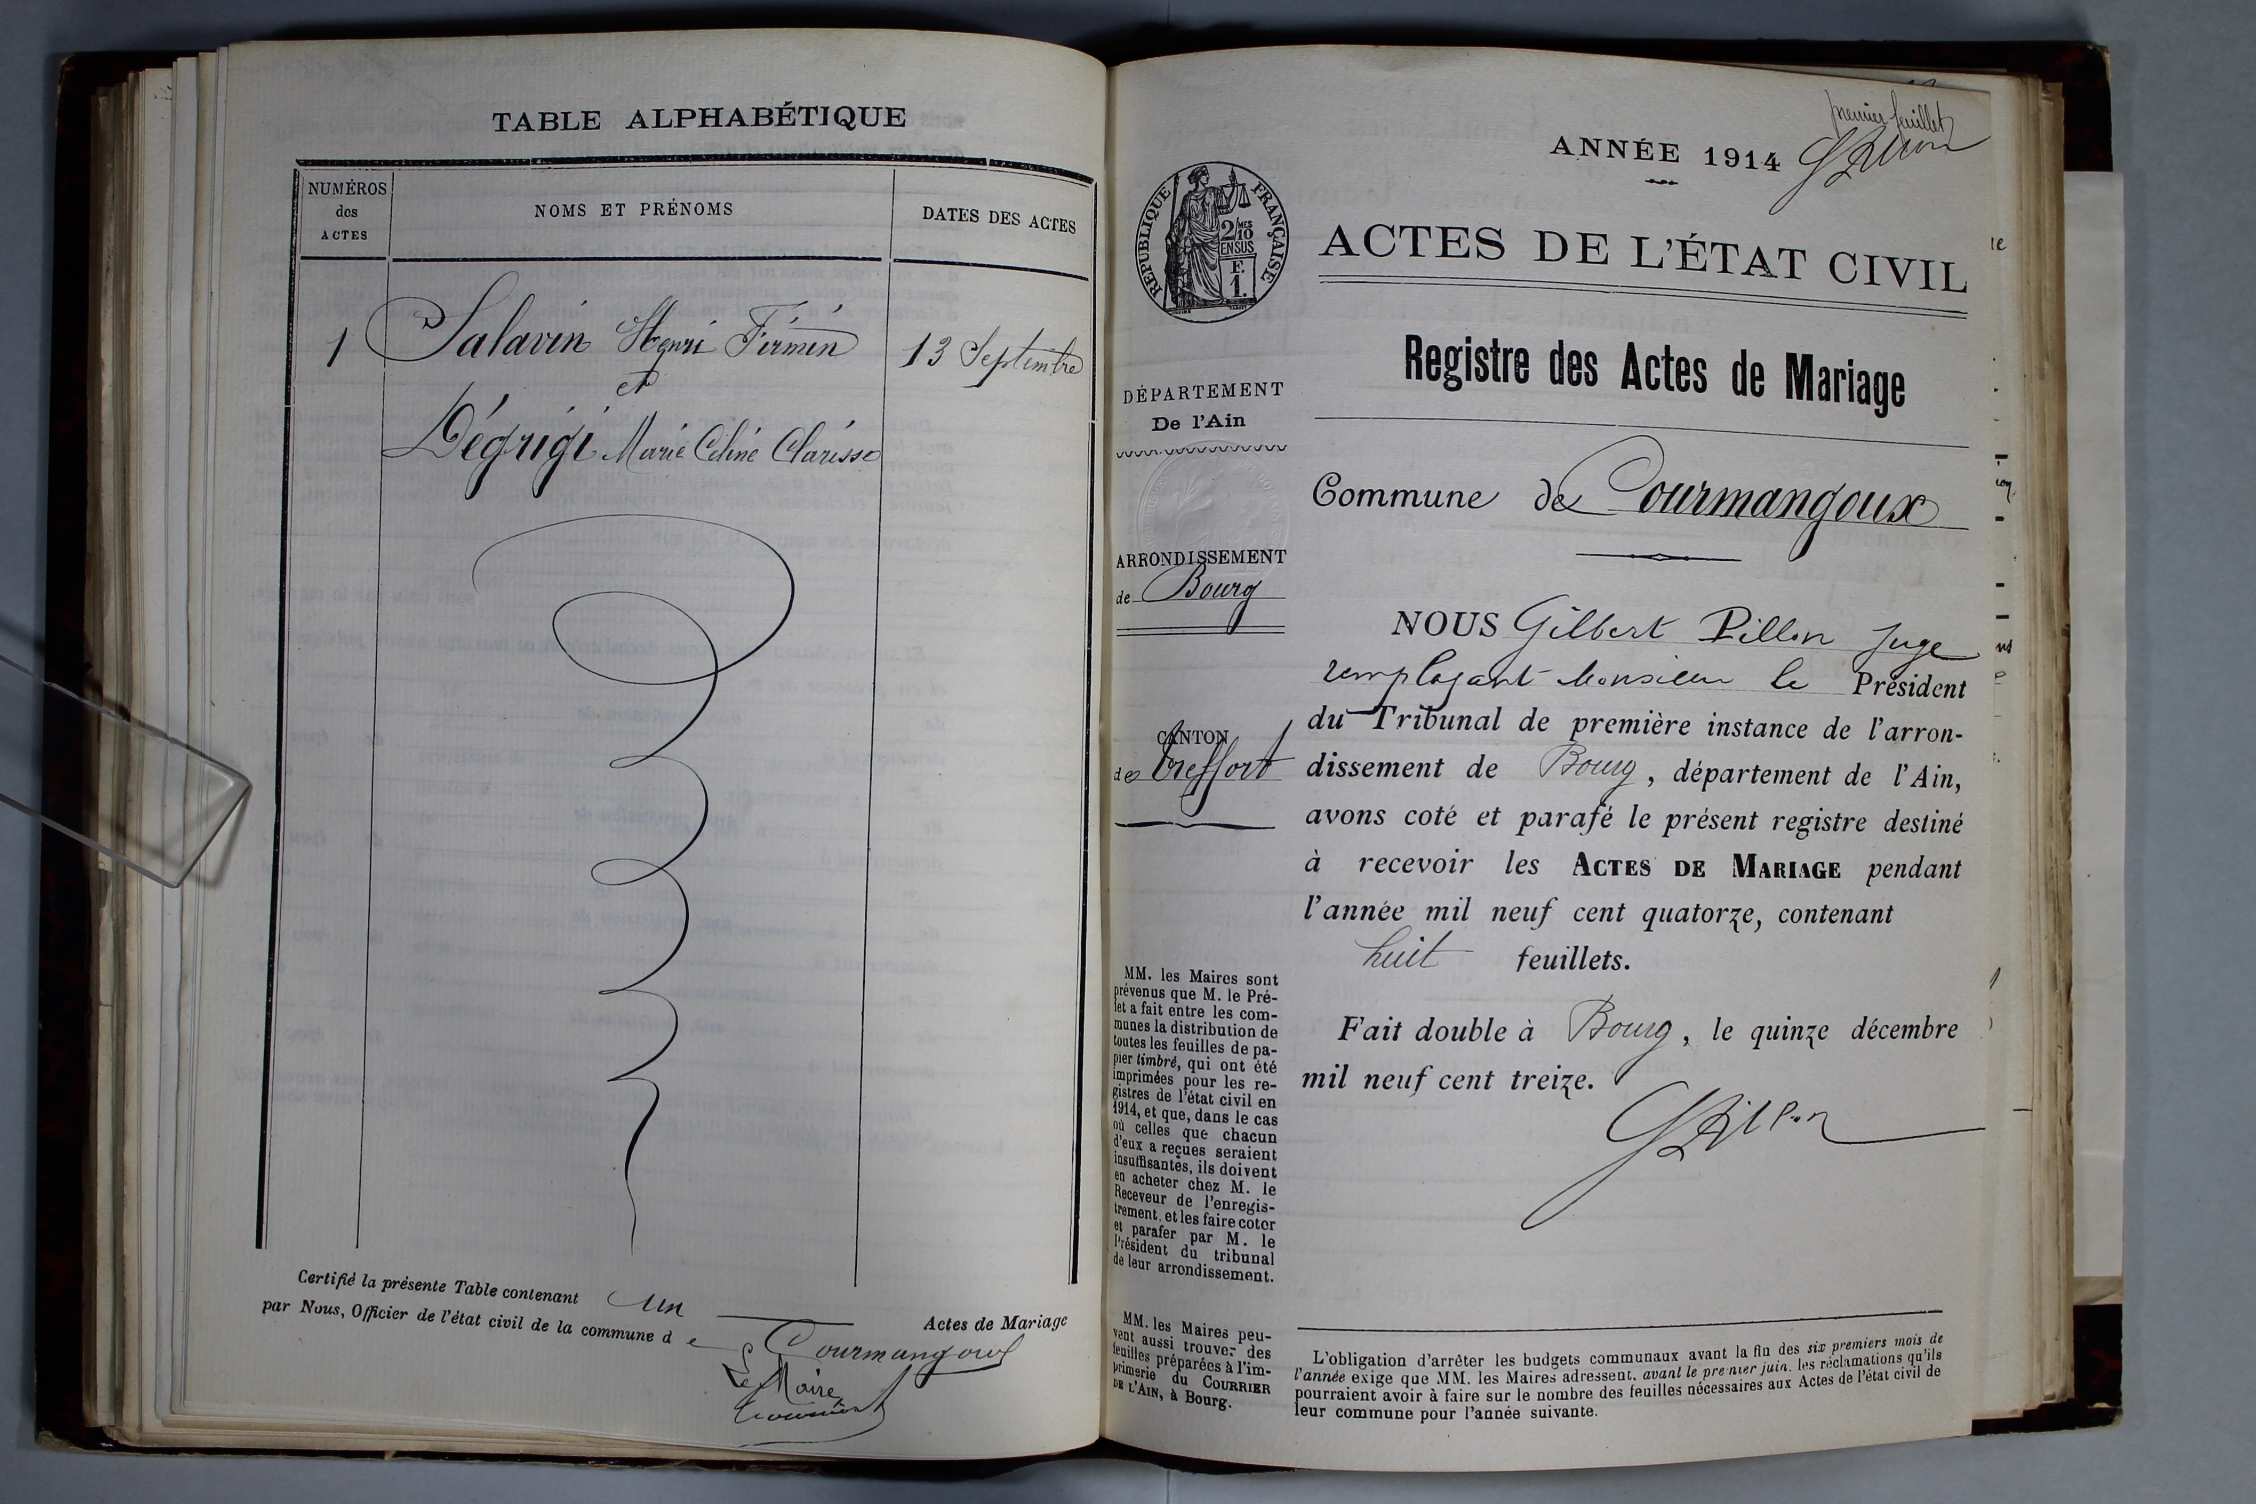 TABLE ALPHABÉTIQUE
NUMÉROS
des
ACTES
NOMS ET PRÉNOMS
DATES DES ACTES
1 Salavin Henri Firmin 13 Septembre
et
Dégrigi Marie Celine Clarisse
Certifié la présente Table contenant un Actes de Mariage
par Nous, Officier de l'état civil de la commune de Courmangoux
Le Maire
premier feuillet
ANNÉE 1914
RÉPUBLIQUE FRANÇAISE
2/10MES
EN SUS
F.
1.
ACTES DE L'ÉTAT CIVIL
Registre des Actes de Mariage
DÉPARTEMENT
De l'Ain
Commune de Courmangoux
ARRONDISSEMENT
de Bourg
CANTON
de Treffort
NOUS Gilbert Pillon Juge
remplaçant Monsieur le Président
du Tribunal de première instance de l'arron-
dissement de Bourg, département de l'Ain,
avons coté et parafé le présent registre destiné
à recevoir les ACTES DE MARIAGE pendant
l'année mil neuf cent quatorze, contenant
huit feuillets.
Fait double à Bourg, le quinze décembre
mil neuf cent treize.
GPillon
MM. les Maires sont
prévenus que M. le Pré-
fet a fait entre les com-
munes la distribution de
toutes les feuilles de pa-
pier timbré, qui ont été
imprimées pour les re-
gistres de l'état civil en
1914, et que, dans le cas
où celles que chacun
d'eux a reçues seraient
insuffisantes, ils doivent
en acheter chez M. le
Receveur de l'enregis-
trement, et les faire coter
et parafer par M. le
Président du tribunal
de leur arrondissement.
MM. les Maires peu-
vent aussi trouver des
feuilles préparées à l'im-
primerie du COURRIER
DE L'AIN, à Bourg.
L'obligation d'arrêter les budgets communaux avant la fin des six premiers mois de
l'année exige que MM. les Maires adressent, avant le premier juin, les réclamations qu'ils
pourraient avoir à faire sur le nombre des feuilles nécessaires aux Actes de l'état civil de
leur commune pour l'année suivante.